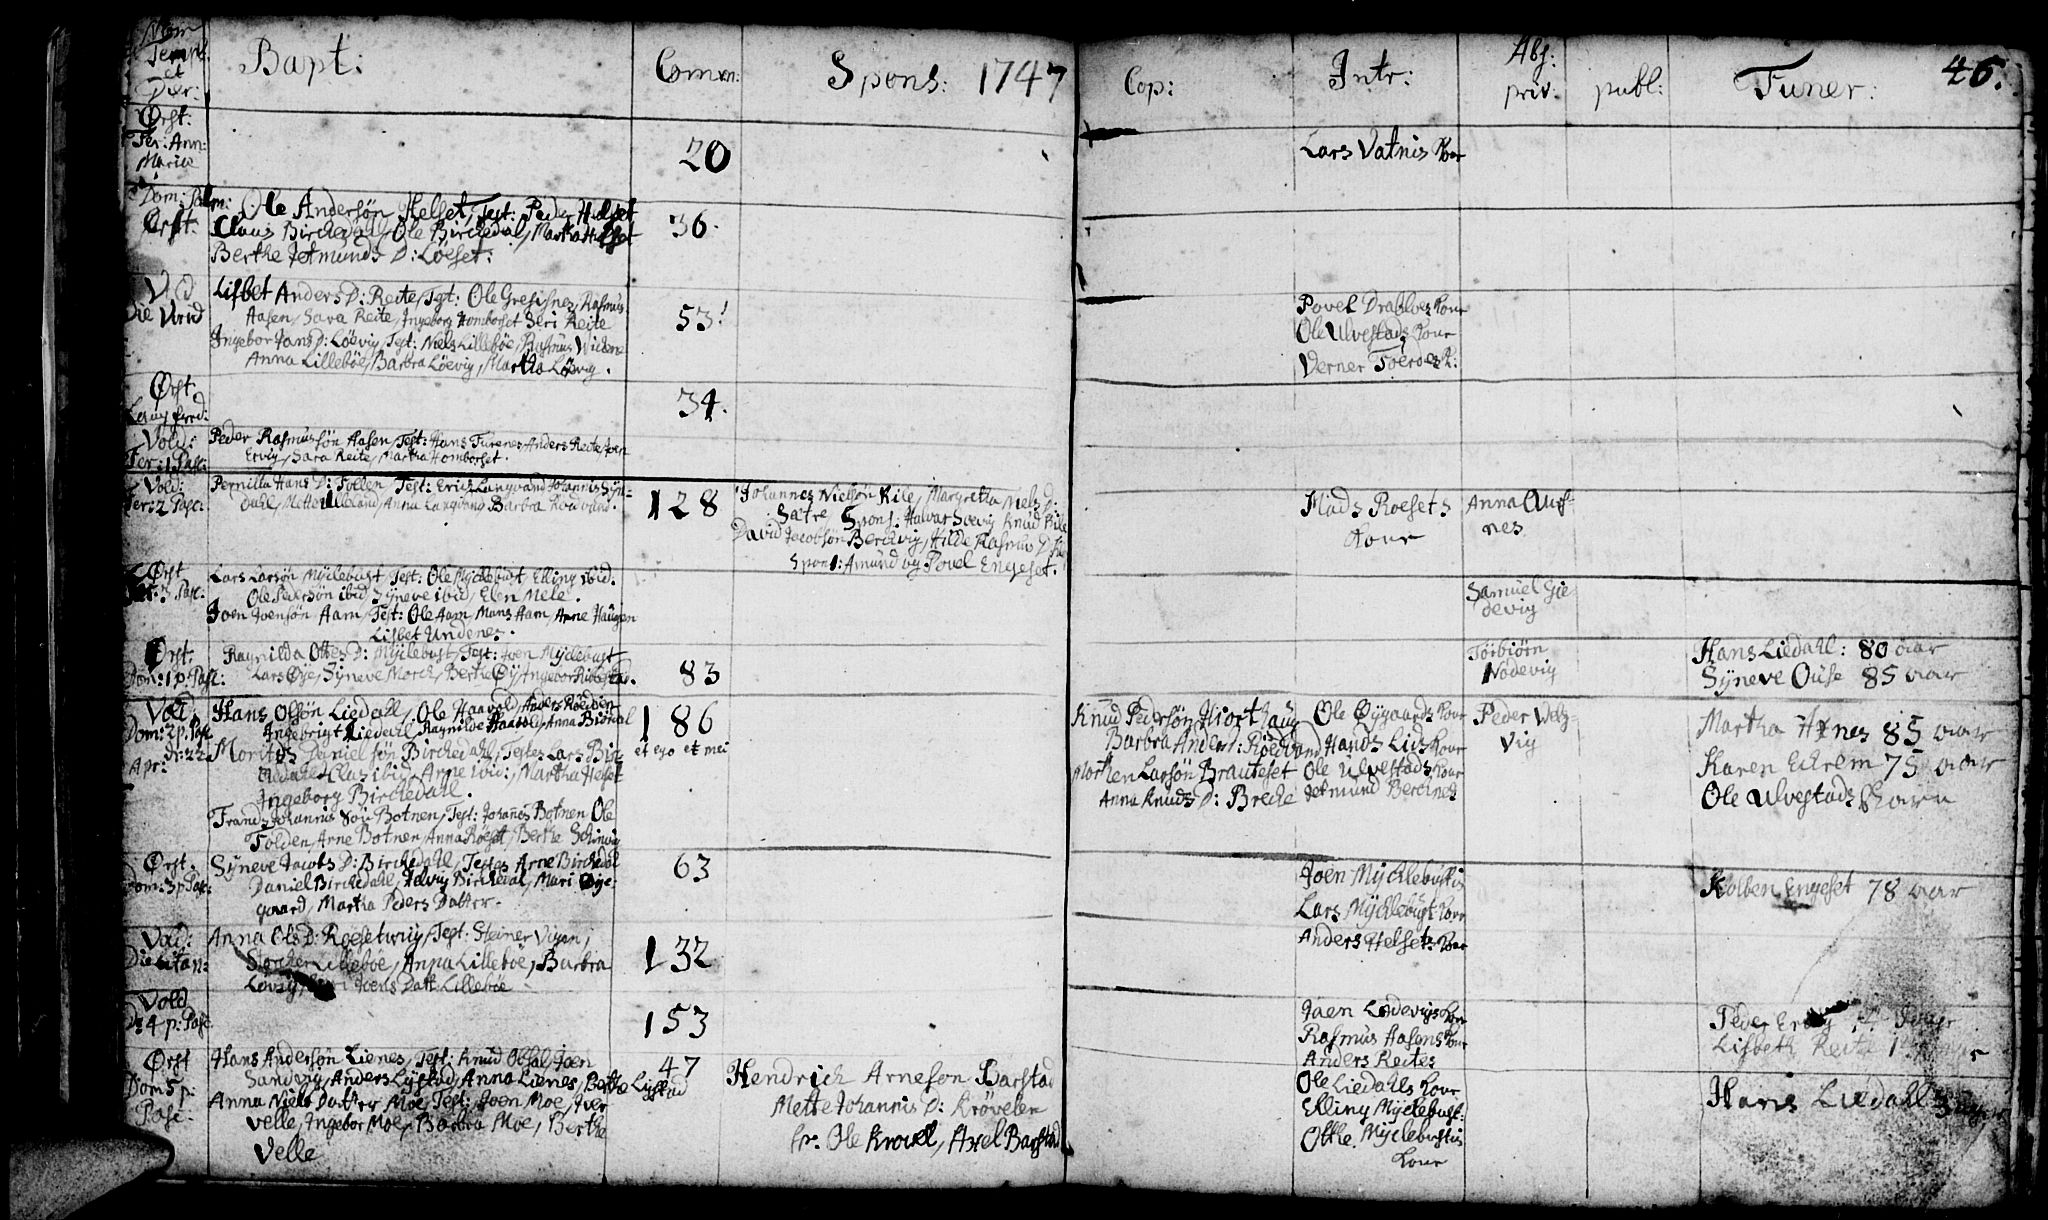 Nom
Templ:
et
Dier:
Bapt:
Comm:
Spons: 1747
Cop:
Intr:
Abs:
priv:
publ:
Funer:
46.
Ørst:
Fer: Ann:
Mariæ
20
Lars Vatnis Kone
Dom: Palm:
Ørst:
Ole Andersøn Helset, Test: Peder Helset
Claus Birchedal, Ole Birchedal, Martha Helset
Berthe Jetmunds D: Løeset:
36.
Vold
Die Virid
Lisbet Anders D: Reite, Test: Ole Rasmus
Aasen, Sara Reite, Ingeborg Homborset Seri Reite
Ingebor Jans D: Løevig, Test: Niels Lillebøe, Rasmus
Anna Lillebøe, Barbra Løevig, Martha Løevig.
53!
Povel Drabløes Kone
Ole Ulvestads Kone
Verner
Ørst:
Lang fred:
34.
Vold:
Fer: 1 Pasc:
Peder Rasmussøn Aasen, Test: Hans Furenes Anders Reite Joen
Ervig, Sara Reite, Martha Homborset.
Vold:
Fer: 2 Pasc:
Pernilla Hans D: Follen Test: Erich Langvand Johannis
dahl, Mette Anna Langvang Barbra
128
Johannes Nielsøn Kile, Margretha Niels D:
Sætre Spons: Halvar Søevig Knud Kile
David Jacobsøn Berckvig, Hilde Rasmus D:
Spons: Amund og Povel Engeset.
Mads Roesets
Kone
Anna Aus-
nes
Ørst
Fer: Pasc:
Lars Larsøn Mycklebust Test: Ole Mycklebust Elling ibid.
Ole Pedersøn ibid Syneve ibid, Elen Mele.
Joen Joensøn Aam, Test: Ole Aam Mons Aam, Arne Haugen
Lisbet Undenes.
Samuel Gie-
devig
Ørst.
Dom: 1 p: Pasc:
Raynilda Ottes D: Mycklebust, Test: Joen Mycklebust
Lars Øye, Syneve Morch, Berthe Øy, Ingebor
83
Torbiørn
Nodevig
Hans Liedahl: 80 aar
Syneve Ouse 85 aar
Vold,
Dom: 2 p. Pasc
d: 22
Apr:
Hans Olsøn Liedahl, Ole Haavold Anders
Ingebrigt Liedahl, Raynilde Haavold, Anna
Morits Danielsøn Birchedahl, Testes: Lars Bir-
chedahl Claus ibid, Arne ibid:, Martha Helset
Ingeborg Birchedahl.
Frands Johannis Søn Botnen, Test: Johannes Botnen Ole
Folden, Arne Botnen, Anna Røeset, Berthe
186
et ego et mei
Knud Pedersøn Hiorthaug
Barbra Anders D: Røedvand
Morten Larsøn Brauteset
Anna Knuds D: Breche
Ole Øygaards Kone
Hands Lids Kone
Ole Ulvestads Kone
Jetmund
Peder Velg-
vig
Martha 85 aar
Karen Eckrem 75 aar
Ole Ulvestads Barn
Ørst.
Dom: 3 p. Pasc:
Syneve Jacobs D: Birchedahl, Testes Arne Birchedal
Daniel Birchedahl, Birchedal, Mari Øye-
gaard, Martha Peders Datter.
63
Joen Mycklebustis
Lars Mycklebust Kone
Anders Helsets Kone
Kolben Engeset 78 aar
Vold:
Die Litan:
Anna Ols D: Roesetwiig, Test: Steiner Vigan,
Lillebøe, Anna Lillebøe, Barbra
Løvig, Joens Datt. Lillebøe
132
Vold
D: 4 p: Pasc.
153
Joen Løedevigs Kone
Rasmus Aasens Kone
Anders Reites
Peder
Lisbeth Reite
Ørst
Dom 5 p:
Pasc:
Hans Andersøn Lienes, Test: Knud Opsal, Joen
Sandvig, Anders Lystad, Anna Lienes, Berthe Lystad
Anna Niels Datter Moe, Test: Joen Moe, Iver
Velle, Ingebor Moe, Barbra Moe, Berthe
Velle
47
Hendrich Arnesøn Barstad
Mette Johannis D: Krøvelen
Sp: Ole Krovel, Axel Barstad
Ole Liedahls Kone
Elling Mycklebust:
Otthe Mycklebustis
Kone
Hans Liedahl